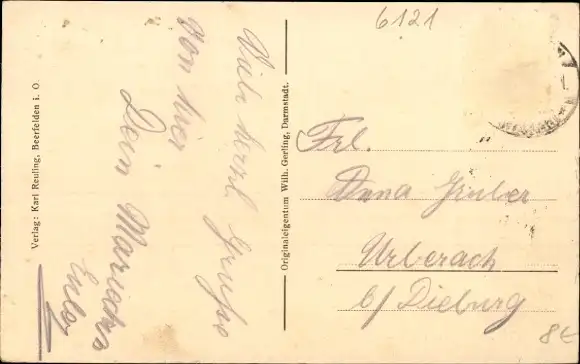 6121
Viele herzl. Grüße
von hier
Dein
Verlag: Karl Reuling, Beerfelden i. O.
Originaleigentum Wilh. Gerling, Darmstadt.
Frl.
Anna Gruber
Urberach
b/ Dieburg
8€